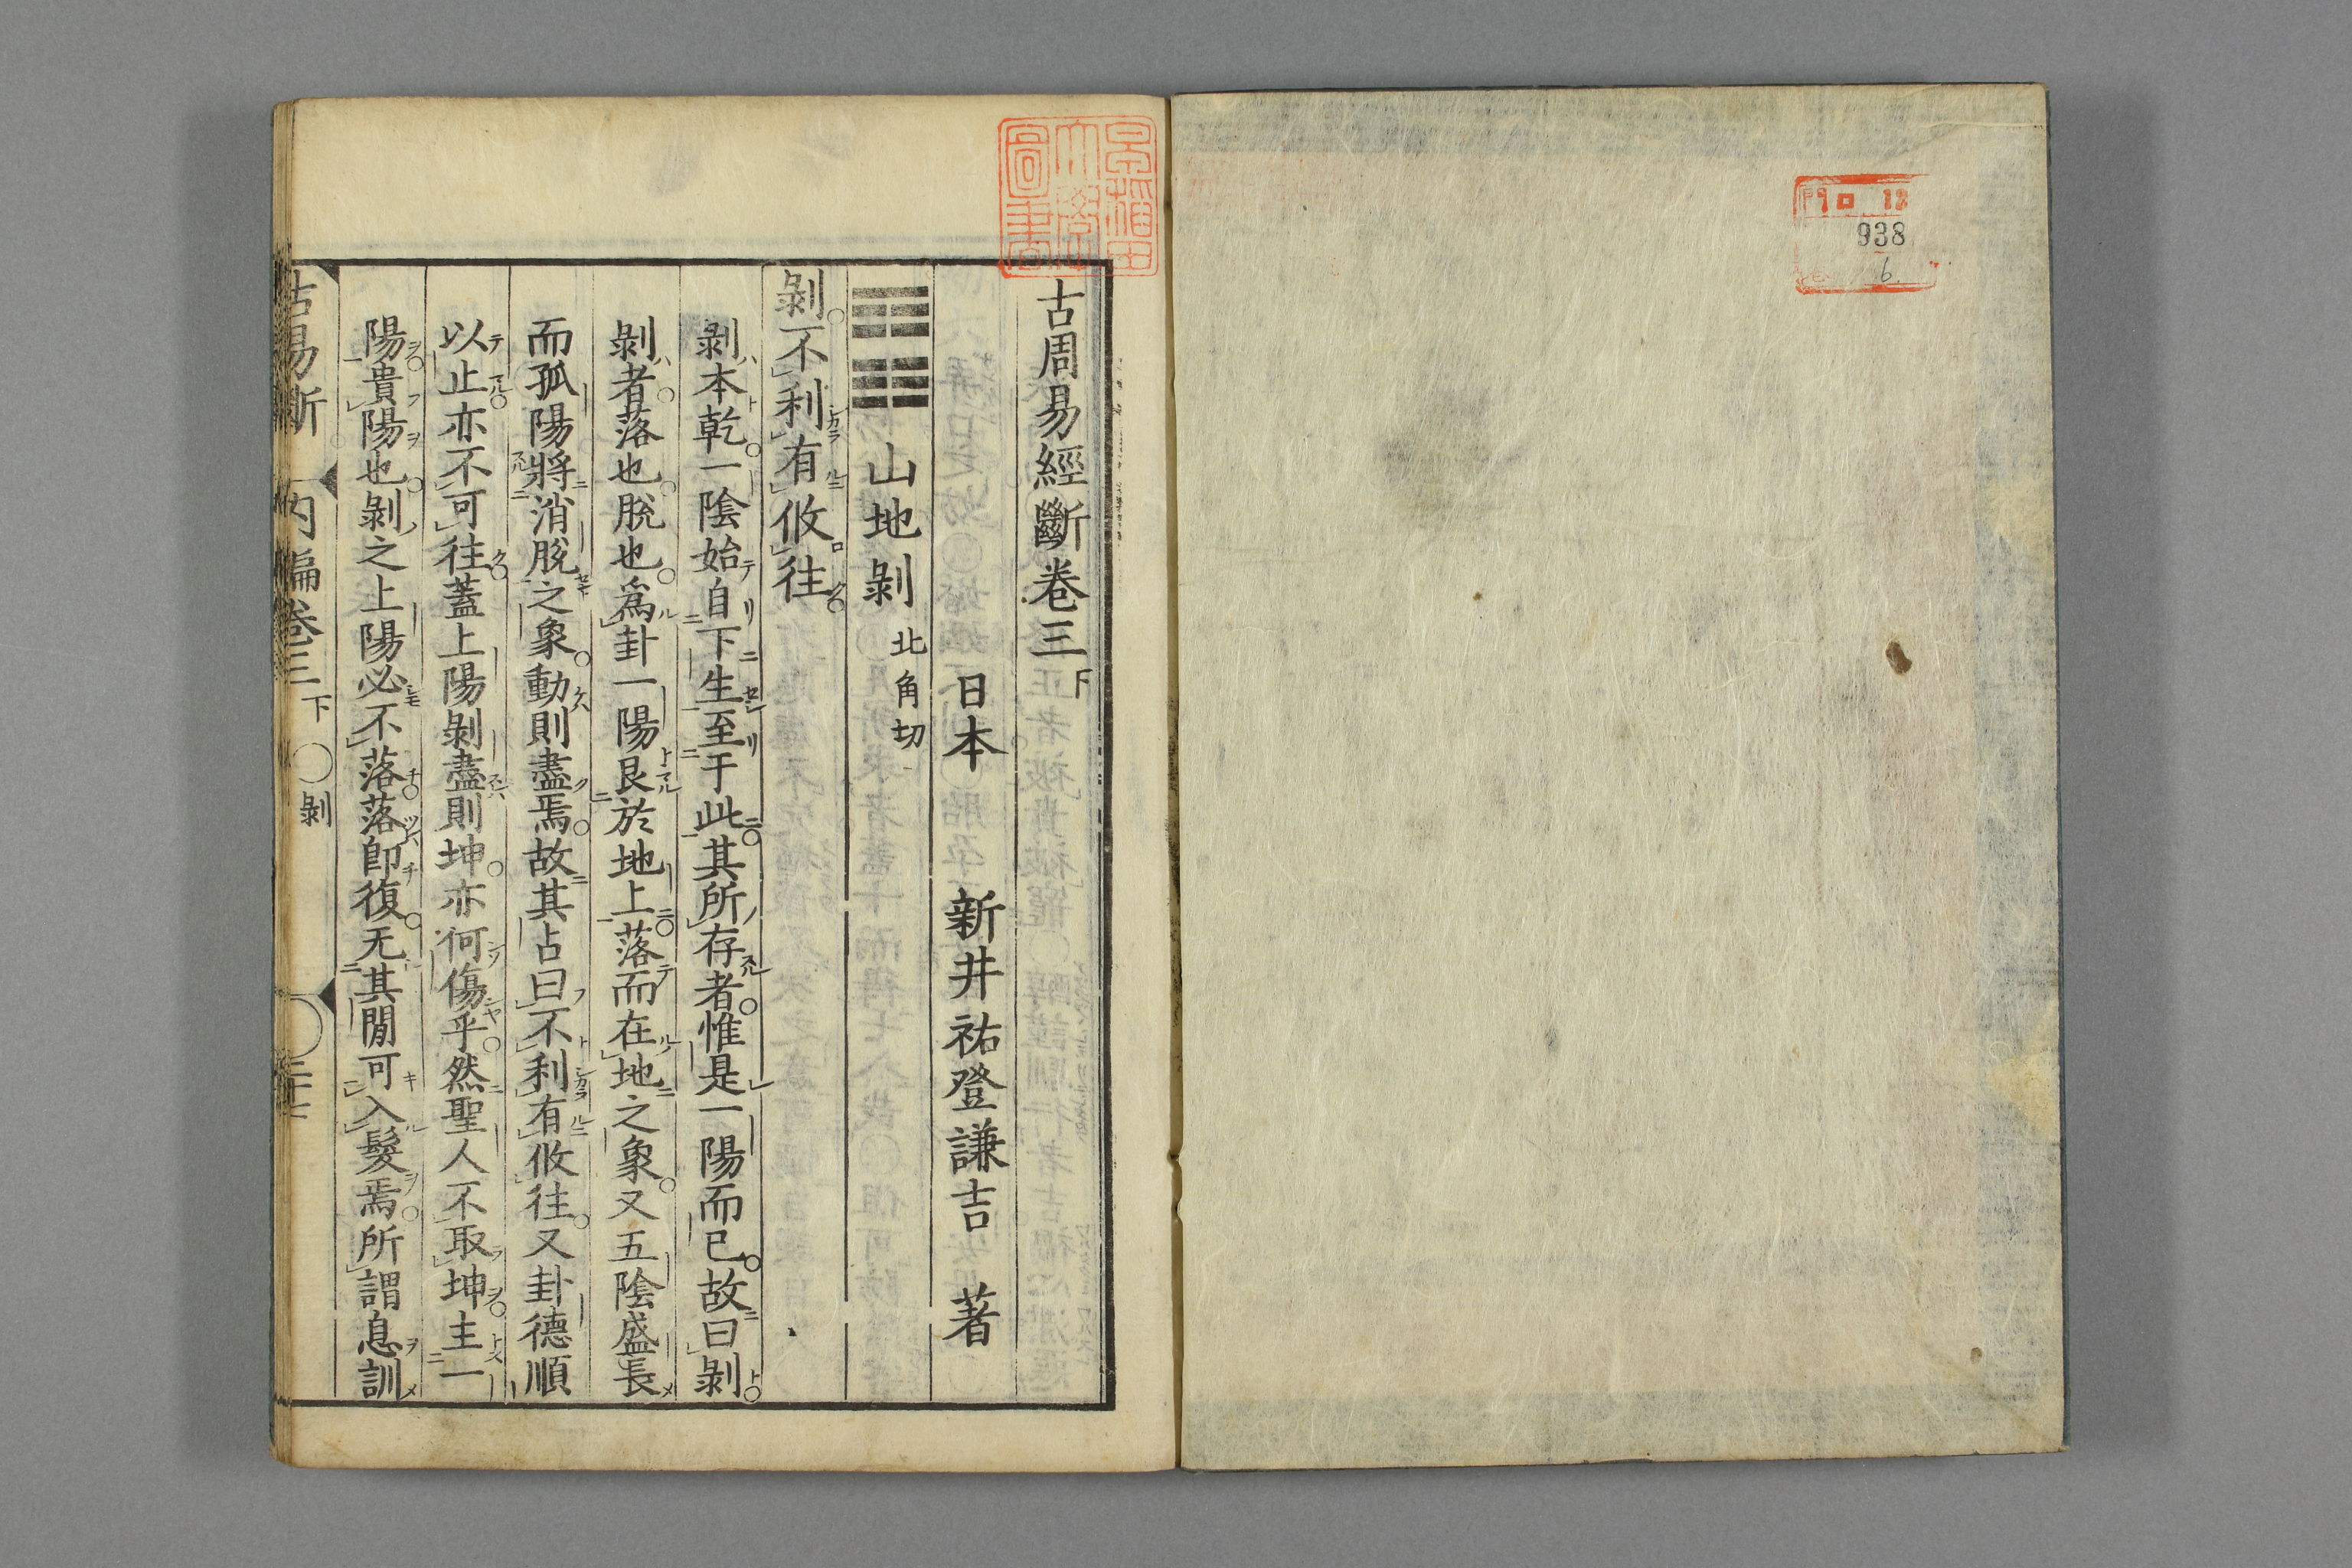 門 ロ 12
938
6
早稲田
大學
圖書
古周易經斷卷三下
日本 新井祐登謙吉 著
山地剝 北角切
剝不利有攸往
剝本乾一陰始自下生至于此其所存者惟是一陽而已故曰剝
剝者落也脫也爲卦一陽艮於地上落而在地之象又五陰盛長
而孤陽將消脫之象動則盡焉故其占曰不利有攸往又卦德順
以止亦不可往蓋上陽剝盡則坤亦何傷乎然聖人不取坤主一
陽貴陽也剝之上陽必不落落卽復无其閒可入髮焉所謂息訓
古易斷 內編卷三下 ○剝